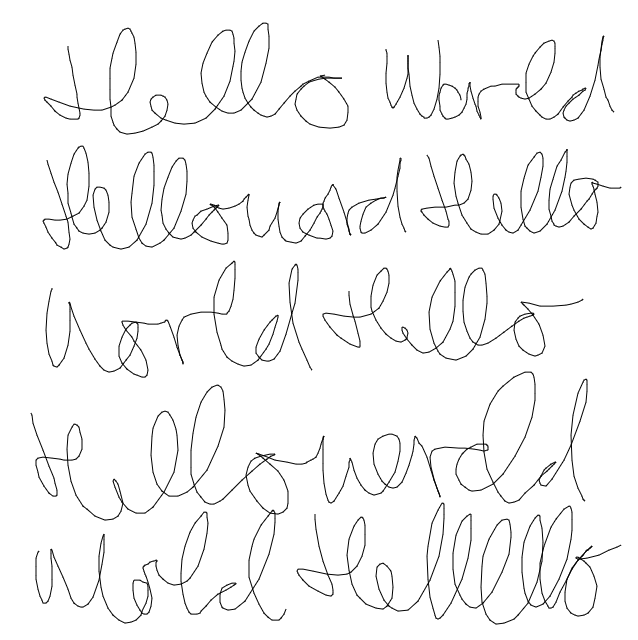 Hello World
Helloword Hello
World Hello
Hellowerld
World Hellllo